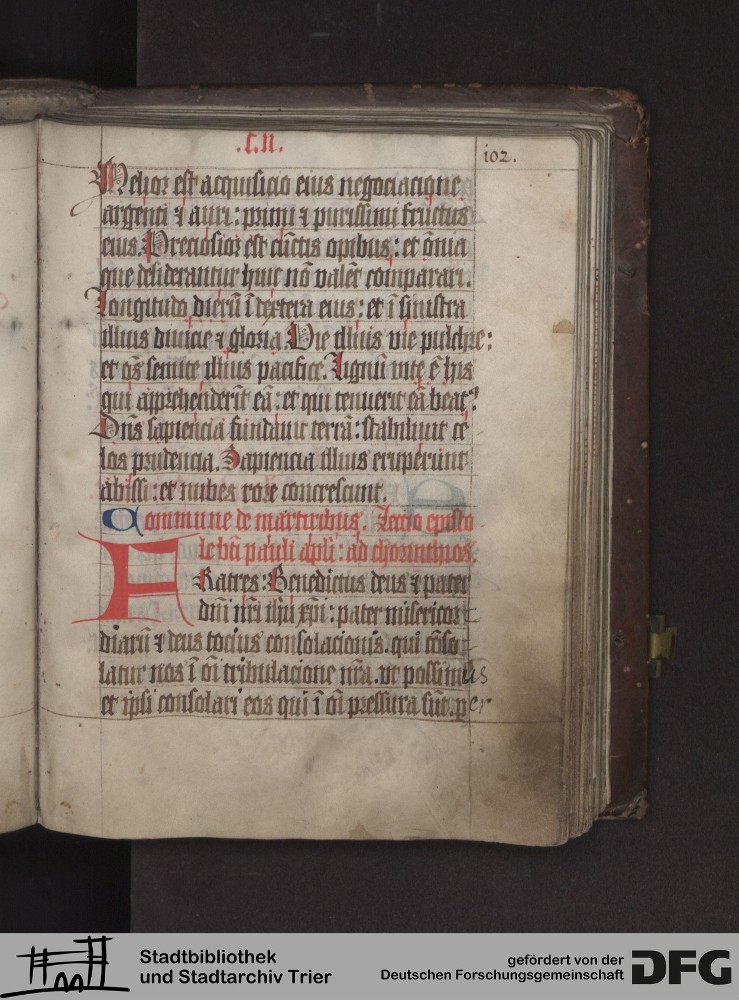 .c.II.
102.
Melior est acquisicio eius negociacione
argenti ⁊ auri: primi ⁊ purissimi fructus
eius. Preciosior est cūctis opibus: et ōmia
que desiderantur huic nō valēt comparari.
Longitudo dierū ī dextera eius: et ī sinistra
illius diuicie ⁊ gloria. Vie illius vie pulchre:
et oēs semite illius pacifice. Lignū vite ē his
qui apprehenderīt eā: et qui tenuerit eā beatꝰ
Dn̄s sapiencia fundauit terrā: stabiliuit ce
los prudencia. Sapiencia illius eruperunt
abissi: et nubes rore concrescunt.
Commune de martiribus. Lectio episto
le bt̄i pauli apl̄i: ad chorinthios.
FRatres: Benedictus deus ⁊ pater
dn̄i nr̄i ih̄u xp̄i: pater misericor
diarū ⁊ deus tocius consolacionis. qui cōso
latur nos ī oī tribulacione nr̄a. vt possimus
et ipsi consolari eos qui ī oī pressura sūt. per
Stadtbibliothek
und Stadtarchiv Trier
gefördert von der
Deutschen Forschungsgemeinschaft
DFG